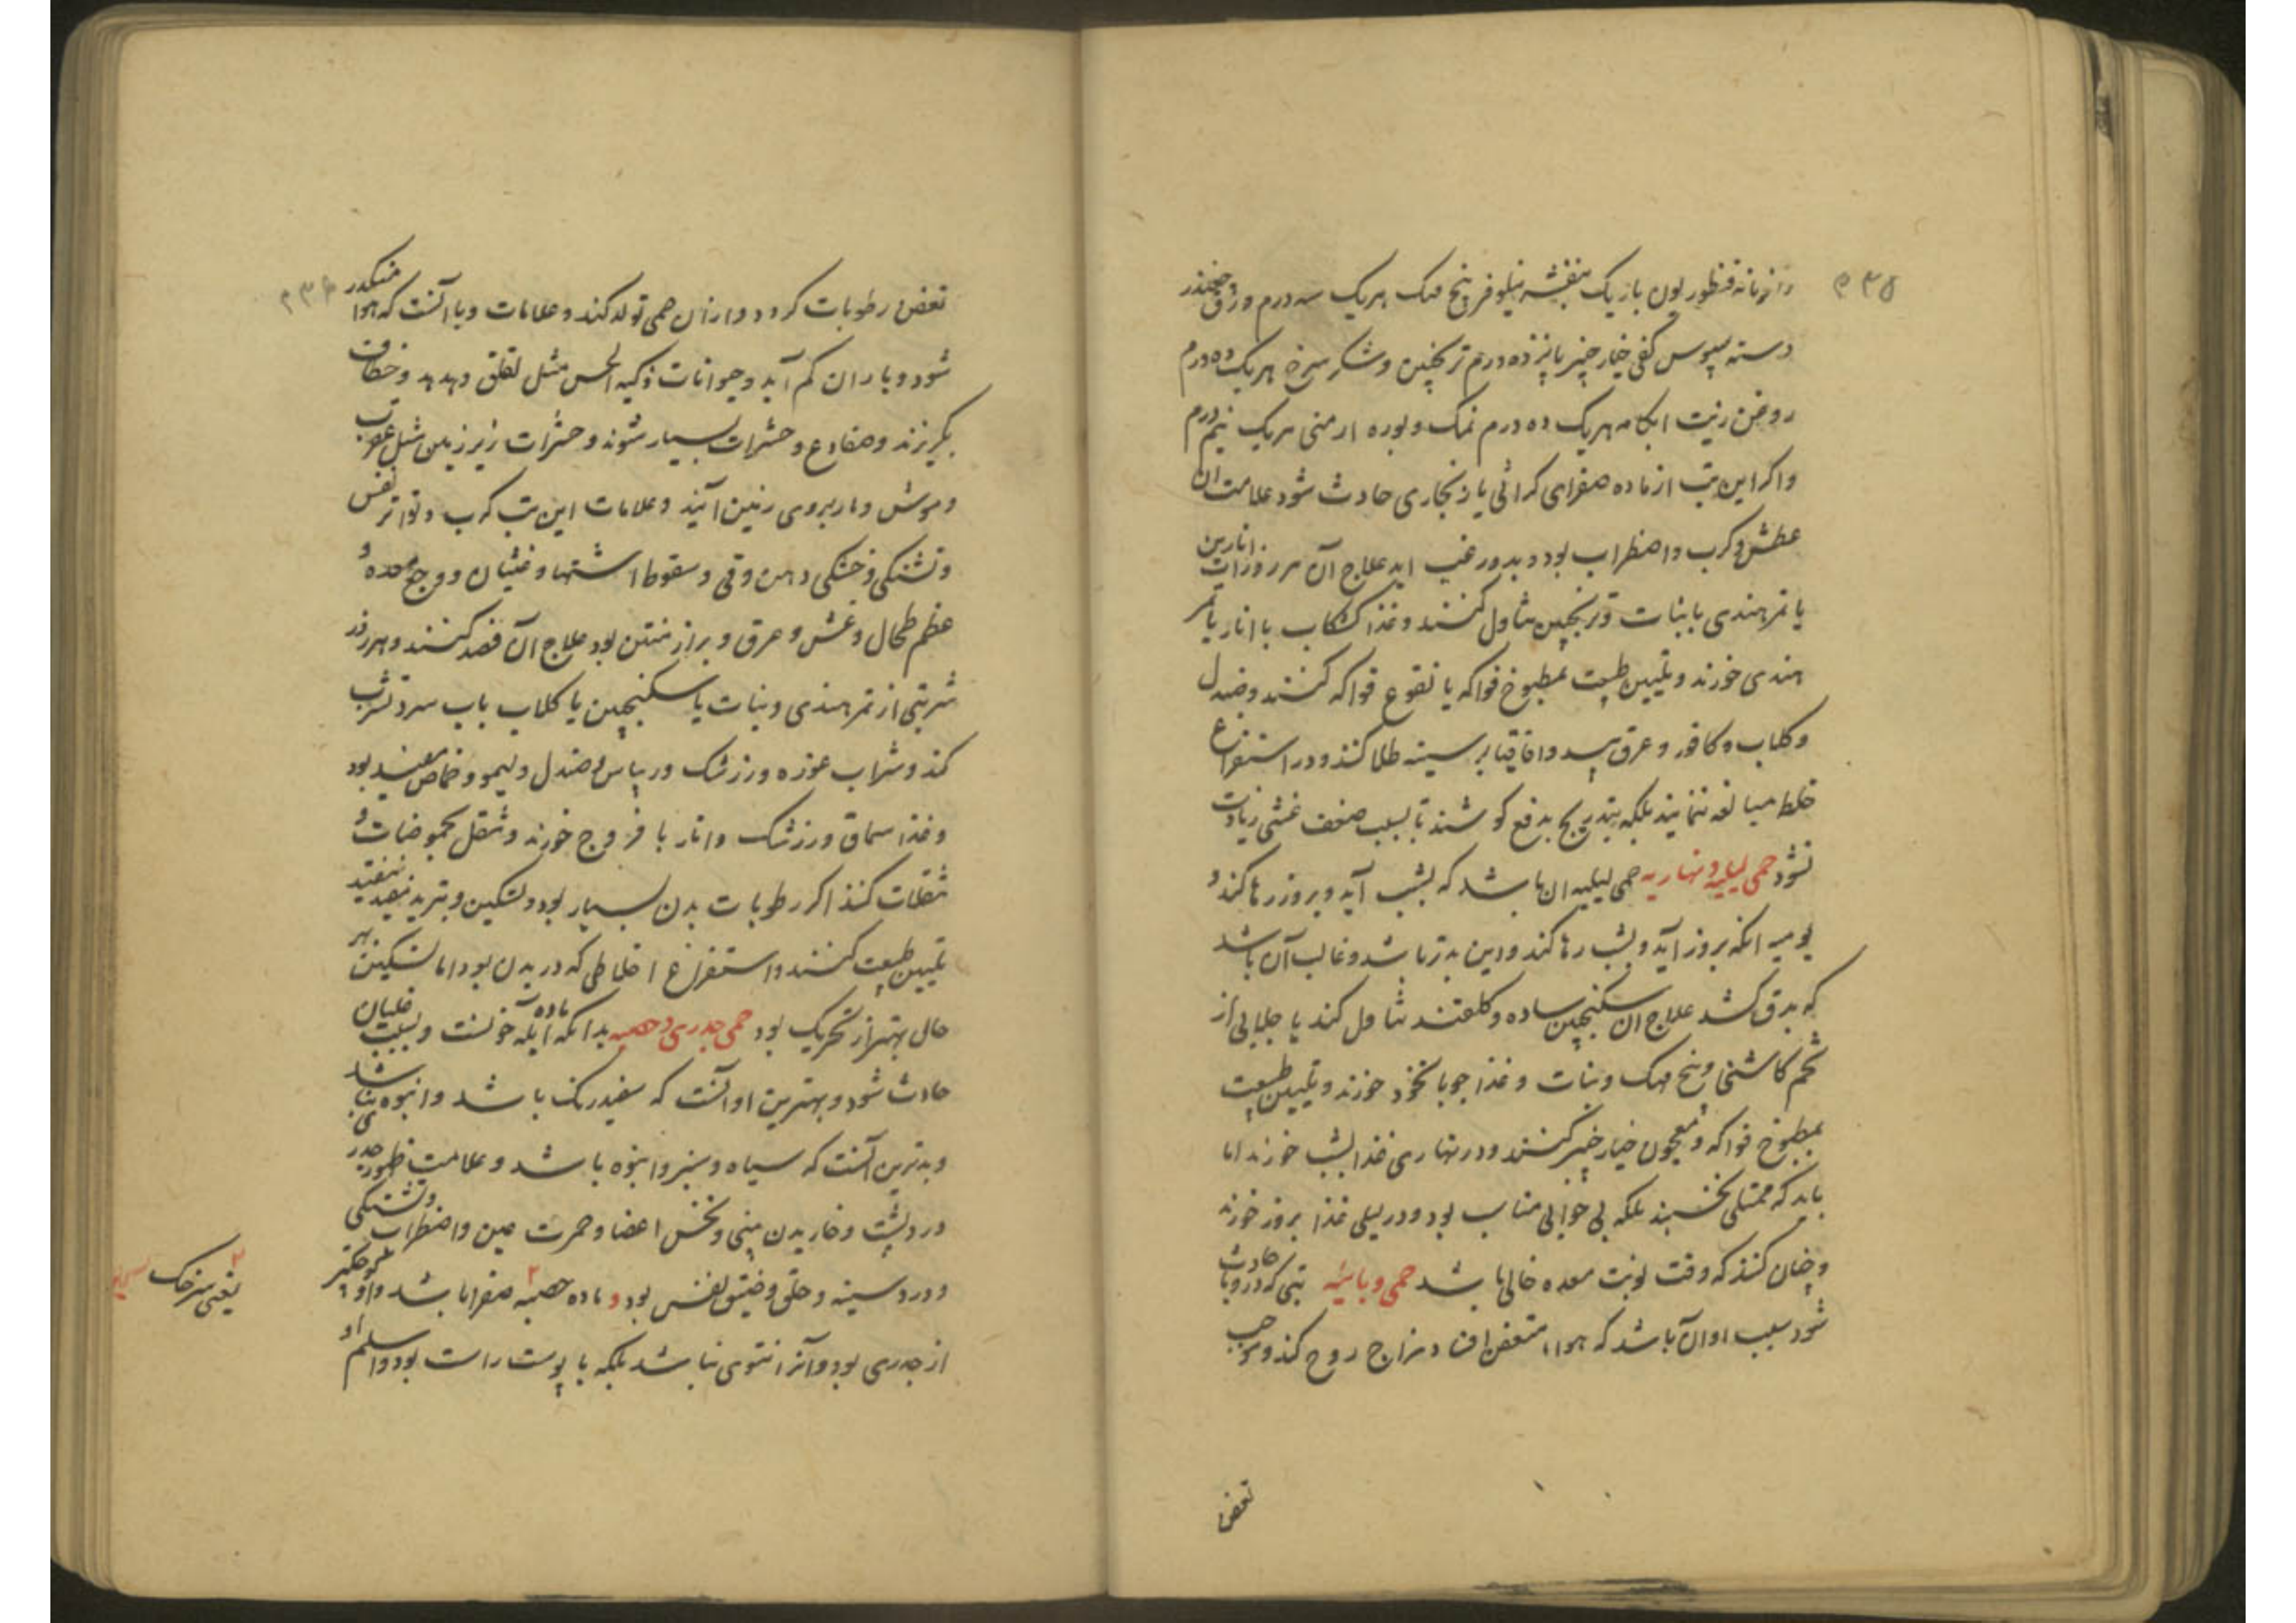 ۵۳۵
رازیانه قنطوریون باریک بنفشه نیلوفر بیخ مهک هریک سه درم ورق چغندر
دسته سپوس کفی خیارچنبر پانزده درم ترنجبین و شکر سرخ هریک ده درم
روغن زیت ابکامه هریک ده درم نمک و بوره ارمنی هریک نیم درم
واکر این تب از ماده صفرای کراثی یا زنکاری حادث شود علامت ان
عطش و کرب و اضطراب بود و بدور غب اید علاج آن هر روز اب انارین
یا تمر هندی با نبات و ترنجبین تناول کنند و غذا کشکاب با انار یا تمر
هندی خورند و تلیین طبیعت بمطبوخ فواکه یا نقوع فواکه کنند و صندل
و کلاب و کافور و عرق بید و اقاقیا بر سینه طلا کنند و در استفراغ
خلط مبالغه ننمایند بلکه بتدریج بدفع کوشند تا بسبب ضعف غشی زیادت
نشود حمی لیلیه و نهاریه حمی لیلیه ان باشد که بشب آید و بروز رها کند و
یومیه انکه بروز آید و بشب رها کند و این بدتر باشد و غالب آن باشد
که بدق کشد علاج ان سکنجبین ساده و کلقند تناول کند یا جلابی از
تخم کاسنی و بیخ مهک و نبات و غذا جو با نخود خورند و تلیین طبیعت
بمطبوخ فواکه و معجون خیارچنبر کنند و در نهاری غذا بشب خورند اما
باید که ممتلی نخسبند بلکه بی خوابی مناسب بود و در لیلی غذا بروز خورند
و چنان کنند که وقت نوبت معده خالی باشد حمی وبائیه تبی که در وبا حادث
شود سبب او آن باشد که هوا متعفن افتاد مزاج روح کند و موجب
تعفن
۵۳۶
تعفن رطوبات کردد و از ان حمی تولد کند و علامات وبا آنست که هوا متکدر
شود و باران کم آید و حیوانات ذکیه الحس مثل لقلق و هدهد و خطاف
بکریزند و ضفادع و حشرات بسیار شوند و حشرات زیر زمین مثل عقرب
و موش و مار بروی زمین آیند و علامات این تب کرب و تواتر نفس
و تشنکی و خشکی دهن و قی و سقوط اشتها و غثیان و وجع معده و
عظم طحال و غشی و عرق و براز منتن بود علاج آن فصد کنند و هر روز
شربتی از تمر هندی و نبات یا سکنجبین یا کلاب باب سرد تشرب
کند و شراب غوره و زرشک و ریباس و صندل و لیمو و حماض مفید بود
و غذا سماق و زرشک و انار با فروج خورند و تنقل بحموضات و
تنقلات کنند اکر رطوبات بدن بسیار بود و تسکین و تبرید نیفید
تلیین طبیعت کنند و استفراغ اخلاطی که در بدن بود اما تسکین بهر
حال بهتر از تحریک بود حمی جدری و حصبه بدانکه ماده آبله خونست و بسبب غلیان
حادث شود و بهترین او آنست که سفید رنک باشد و انبوه نباشد
و بدترین آنست که سیاه و سبز و انبوه باشد و علامت ظهور جدری
درد پشت و خاریدن بینی و نخس اعضا و حمرت عین و اضطراب و تشنکی
و درد سینه و حلق و ضیق نفس بود و ماده حصبه صفرا باشد و او کوچکتر
از جدری بود و آنرا نتوی نباشد بلکه با پوست راست بود و اسلم او
یعنی سرخک